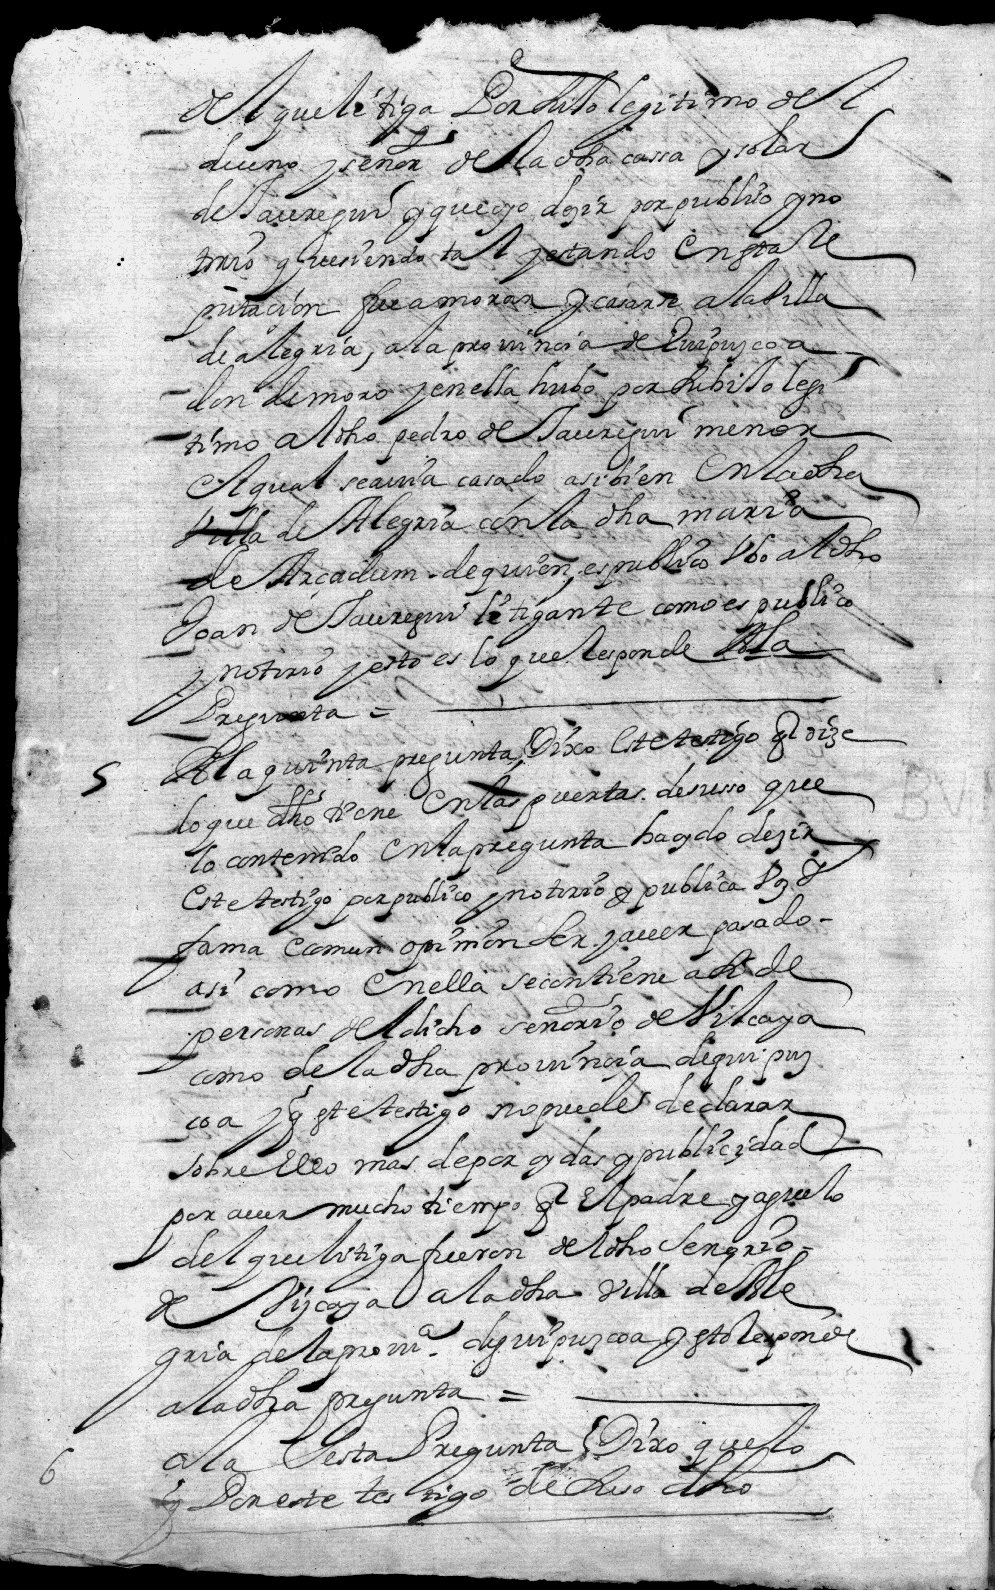 del que litiga Por hijo legitimo del
dueno y señor de la dha cassa y solar
de Jauregui y que oyo dezir por publico y no
torio q̃ siendo tal y estando en esta Re
putacion fue a morar y casarse a la Villa
de alegria, a la provincia de Guipuzcoa
donde moro y en ella hubo por su hijo legi
timo al dho pedro de Jauregui menor
el qual se avia casado asibien en la dha
Villa de Alegria con la dha maria
de Arçadum de quien es publico Vbo al dho
Joan de Jauregui litigante como es publico
y notorio y esto es lo que Responde A la
Pregunta =
5 A la quinta pregunta Dixo este testigo q̃ dize
lo que dho tiene en las preguntas desuso que
lo contenido en la pregunta ha oydo dezir
este testigo por publico y notorio & publica Voz &
fama comun opinion ser y auer pasado
asi como en ella se contiene asi de
personas del dicho señorio de Vizcaya
como de la dha provincia de guipuz
coa y q̃ este testigo no puede declarar
sobre ello mas de por oydas y publicidad
por auer mucho tiempo q̃ el padre y aguelo
del que litiga fueron del dho Senorio
de Vizcaya a la dha villa de Ale
gria de la provia. de guipuzcoa y esto Responde
a la dha pregunta =
6 a la Sesta Pregunta Dixo que lo
q̃ Por este testigo de suso dho